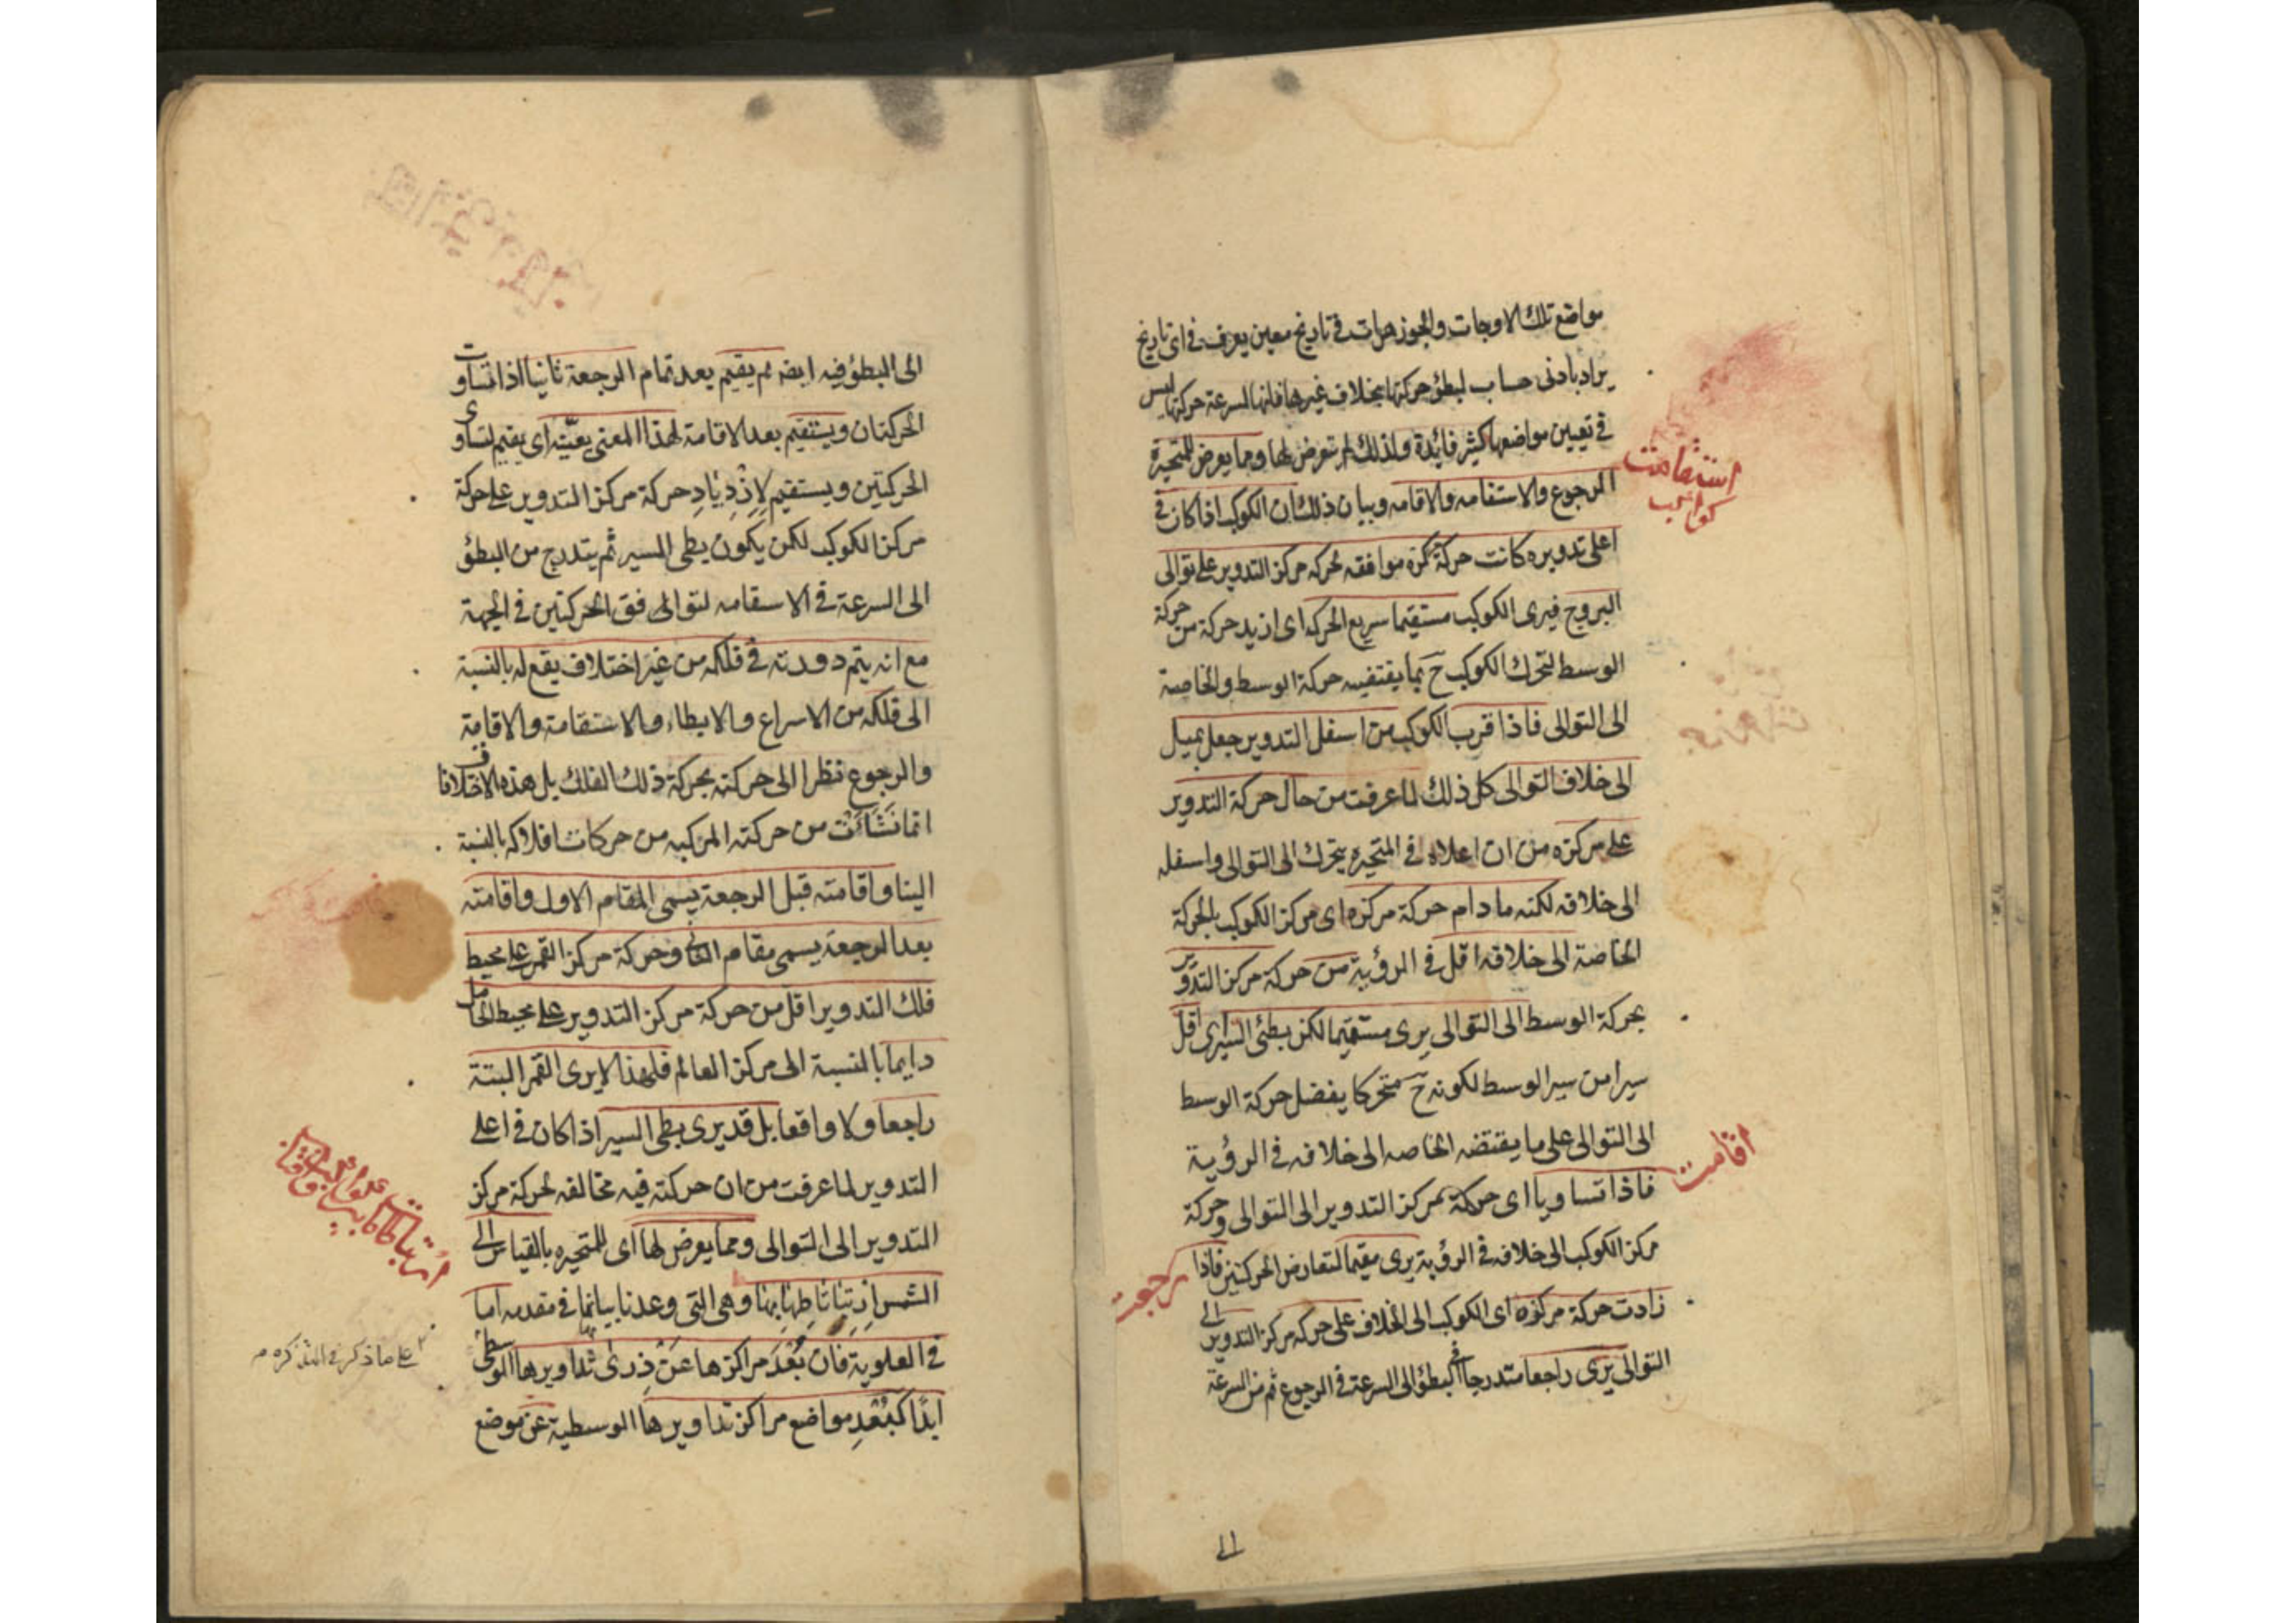 مواضع تلك الاوجات والجوزهرات في تاريخ معين يعرف في اى تاريخ
يراد بادنى حساب لبطؤ حركتها بخلاف غيرها فانها لسرعة حركتها ليس
في تعيين مواضعها كثير فائدة ولذلك لم تعرض لها ومما يعرض للمتحيرة
الرجوع والاستقامه والاقامه وبيان ذلك ان الكوكب اذا كان في
اعلى تدويره كانت حركة مركزه موافقه لحركه مركز التدوير على توالى
البروج فيرى الكوكب مستقيما سريع الحركه اى ازيد حركة من حركة
الوسط لتحرك الكوكب ح بما يقتضيه حركة الوسط والخاصة
الى التوالى فاذا قرب الكوكب من اسفل التدوير جعل يميل
الى خلاف التوالى كل ذلك لما عرفت من حال حركة التدوير
على مركزه من ان اعلاه في المتحيره يتحرك الى التوالى واسفله
الى خلافه لكنه ما دام حركة مركزه اى مركز الكوكب بالحركة
الخاصة الى خلافه اقل في الرؤية من حركة مركز التدوير
بحركة الوسط الى التوالى يرى مستقيما لكن بطئ السير اى اقل
سيرا من سير الوسط لكونه ح متحركا بفضل حركة الوسط
الى التوالى على ما يقتضه الخاصه الى خلافه في الرؤية
فاذا تساويا اى حركة مركز التدوير الى التوالى وحركة
مركز الكوكب الى خلافه في الرؤية يرى مقيما لتعارض الحركتين فاذا
زادت حركة مركزه اى الكوكب الى الخلاف على حركه مركز التدوير الى
التوالى يرى راجعا متدرجا في البطؤ الى السرعة في الرجوع ثم من السرعة
استقامت
كواكب
اقامت
رجعت
الى البطؤ فيه ايضه ثم يقيم بعد تمام الرجعة ثانيا اذا تساوت
الحركتان ويستقيم بعد الاقامة لهذا المعنى بعينه اى يقيم لتساوى
الحركتين ويستقيم لازدياد حركة مركز التدوير على حركة
مركز الكوكب لكن يكون بطى السير ثم يتدرج من البطؤ
الى السرعة في الاستقامه لتوافق الحركتين في الجهة
مع انه يتم دورته في فلكه من غير اختلاف يقع له بالنسبة
الى فلكه من الاسراع والابطاء والاستقامة والاقامة
والرجوع نظرا الى حركته بحركة ذلك الفلك بل هذه الاختلافات
انما نشأت من حركته المركبه من حركات افلاكه بالنسبة
الينا واقامته قبل الرجعة يسمى المقام الاول واقامته
بعد الرجعة يسمى مقام الثانى وحركة مركز القمر على محيط
فلك التدوير اقل من حركة مركز التدوير على محيط الحامل
دايما بالنسبة الى مركز العالم فلهذا لا يرى القمر البتة
راجعا ولا واقعا بل قد يرى بطى السير اذا كان في اعلى
التدوير لما عرفت من ان حركته فيه مخالفه لحركة مركز
التدوير الى التوالى ومما يعرض لها اى للمتحيره بالقياس الى
الشمس ارتباطها بها وهى التى وعدنا بيانها في مقدمه اما
في العلوية فان بعد مراكزها عن ذرى تداويرها الوسطى
ابدا كبعد مواضع مراكز تداويرها الوسطية عن موضع
على ما ذكر في التذكره م